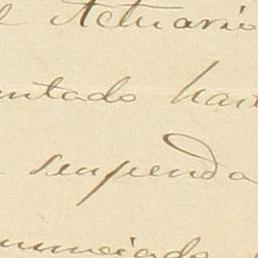 e Actuario
ntado hast
suspenda
nunciado